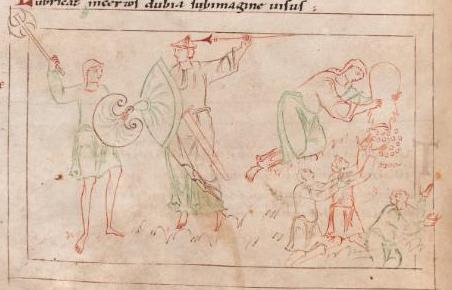 Lubricat incertos dubia sub imagine visus :